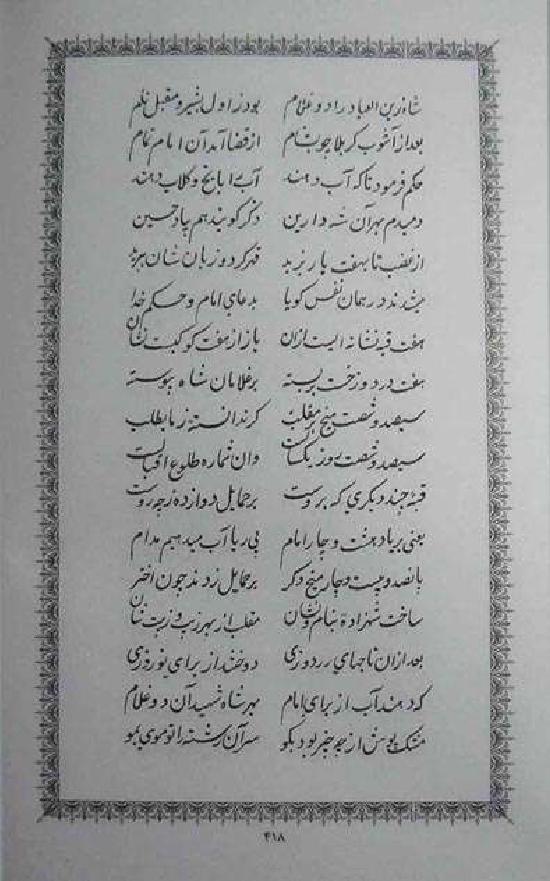 شاه زین العباد را دو غلام بود ز اول بشیر و مقبل نام
بعد از آشوب کربلا چو بشام از قضا آمد آن امام تمام
حکم فرمود تا که آب دهند آب را با یخ و گلاب دهند
دمبدم بهر آن شه دارین ذکر گویند هم بیاد حسین
از غضب تا بهفت بار یزید قهر کرد و زبان شان ببرید
میشدند در همان نفس گویا بدعای امام و حکم خدا
هفت قبه نشانه ایست ازان باز از هفت کوکبست نشان
هفت در دوزخست بسته بر غلامان شاه پیوسته
سیصد و شصت میخ بر مغلب کر ندانسته ز ما بطلب
سیصد و شصت روز یکسالست وان شماره طلوع اقبالست
قبه چند دیگری که بروست بر حمایل دوازده ز چه روست
یعنی بر یاد هشت و چار امام بی ریا آب میدهیم مدام
پانصد و بیست و چار میخ دگر بر حمایل زدند چون اختر
ساخت شهزاده بنام و نشان مغلب از بهر زیب و زینت شان
بعد ازان تاجهای زردوزی دوختند از برای نوروزی
که دهند آب از برای امام بهر شاه شهید آن دو غلام
مشک پوش از چه چیز بود بگو سر آن رشته را تو موی بمو
۴۱۸